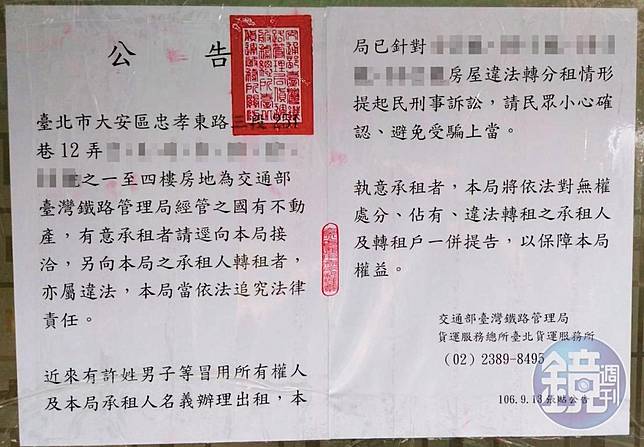 公告
臺北市大安區忠孝東路三段251
巷12弄
之一至四樓房地為交通部
臺灣鐵路管理局經管之國有不動
產，有意承租者請逕向本局接
洽，另向本局之承租人轉租者，
亦屬違法，本局當依法追究法律
責任。
近來有許姓男子等冒用所有權人
及本局承租人名義辦理出租，本
局已針對
房屋違法轉分租情形
提起民刑事訴訟，請民眾小心確
認、避免受騙上當。
執意承租者，本局將依法對無權
處分、佔有、違法轉租之承租人
及轉租戶一併提告，以保障本局
權益。
交通部臺灣鐵路管理局
貨運服務總所臺北貨運服務所
(02) 2389-8495
106.9.13張貼公告
鏡週刊